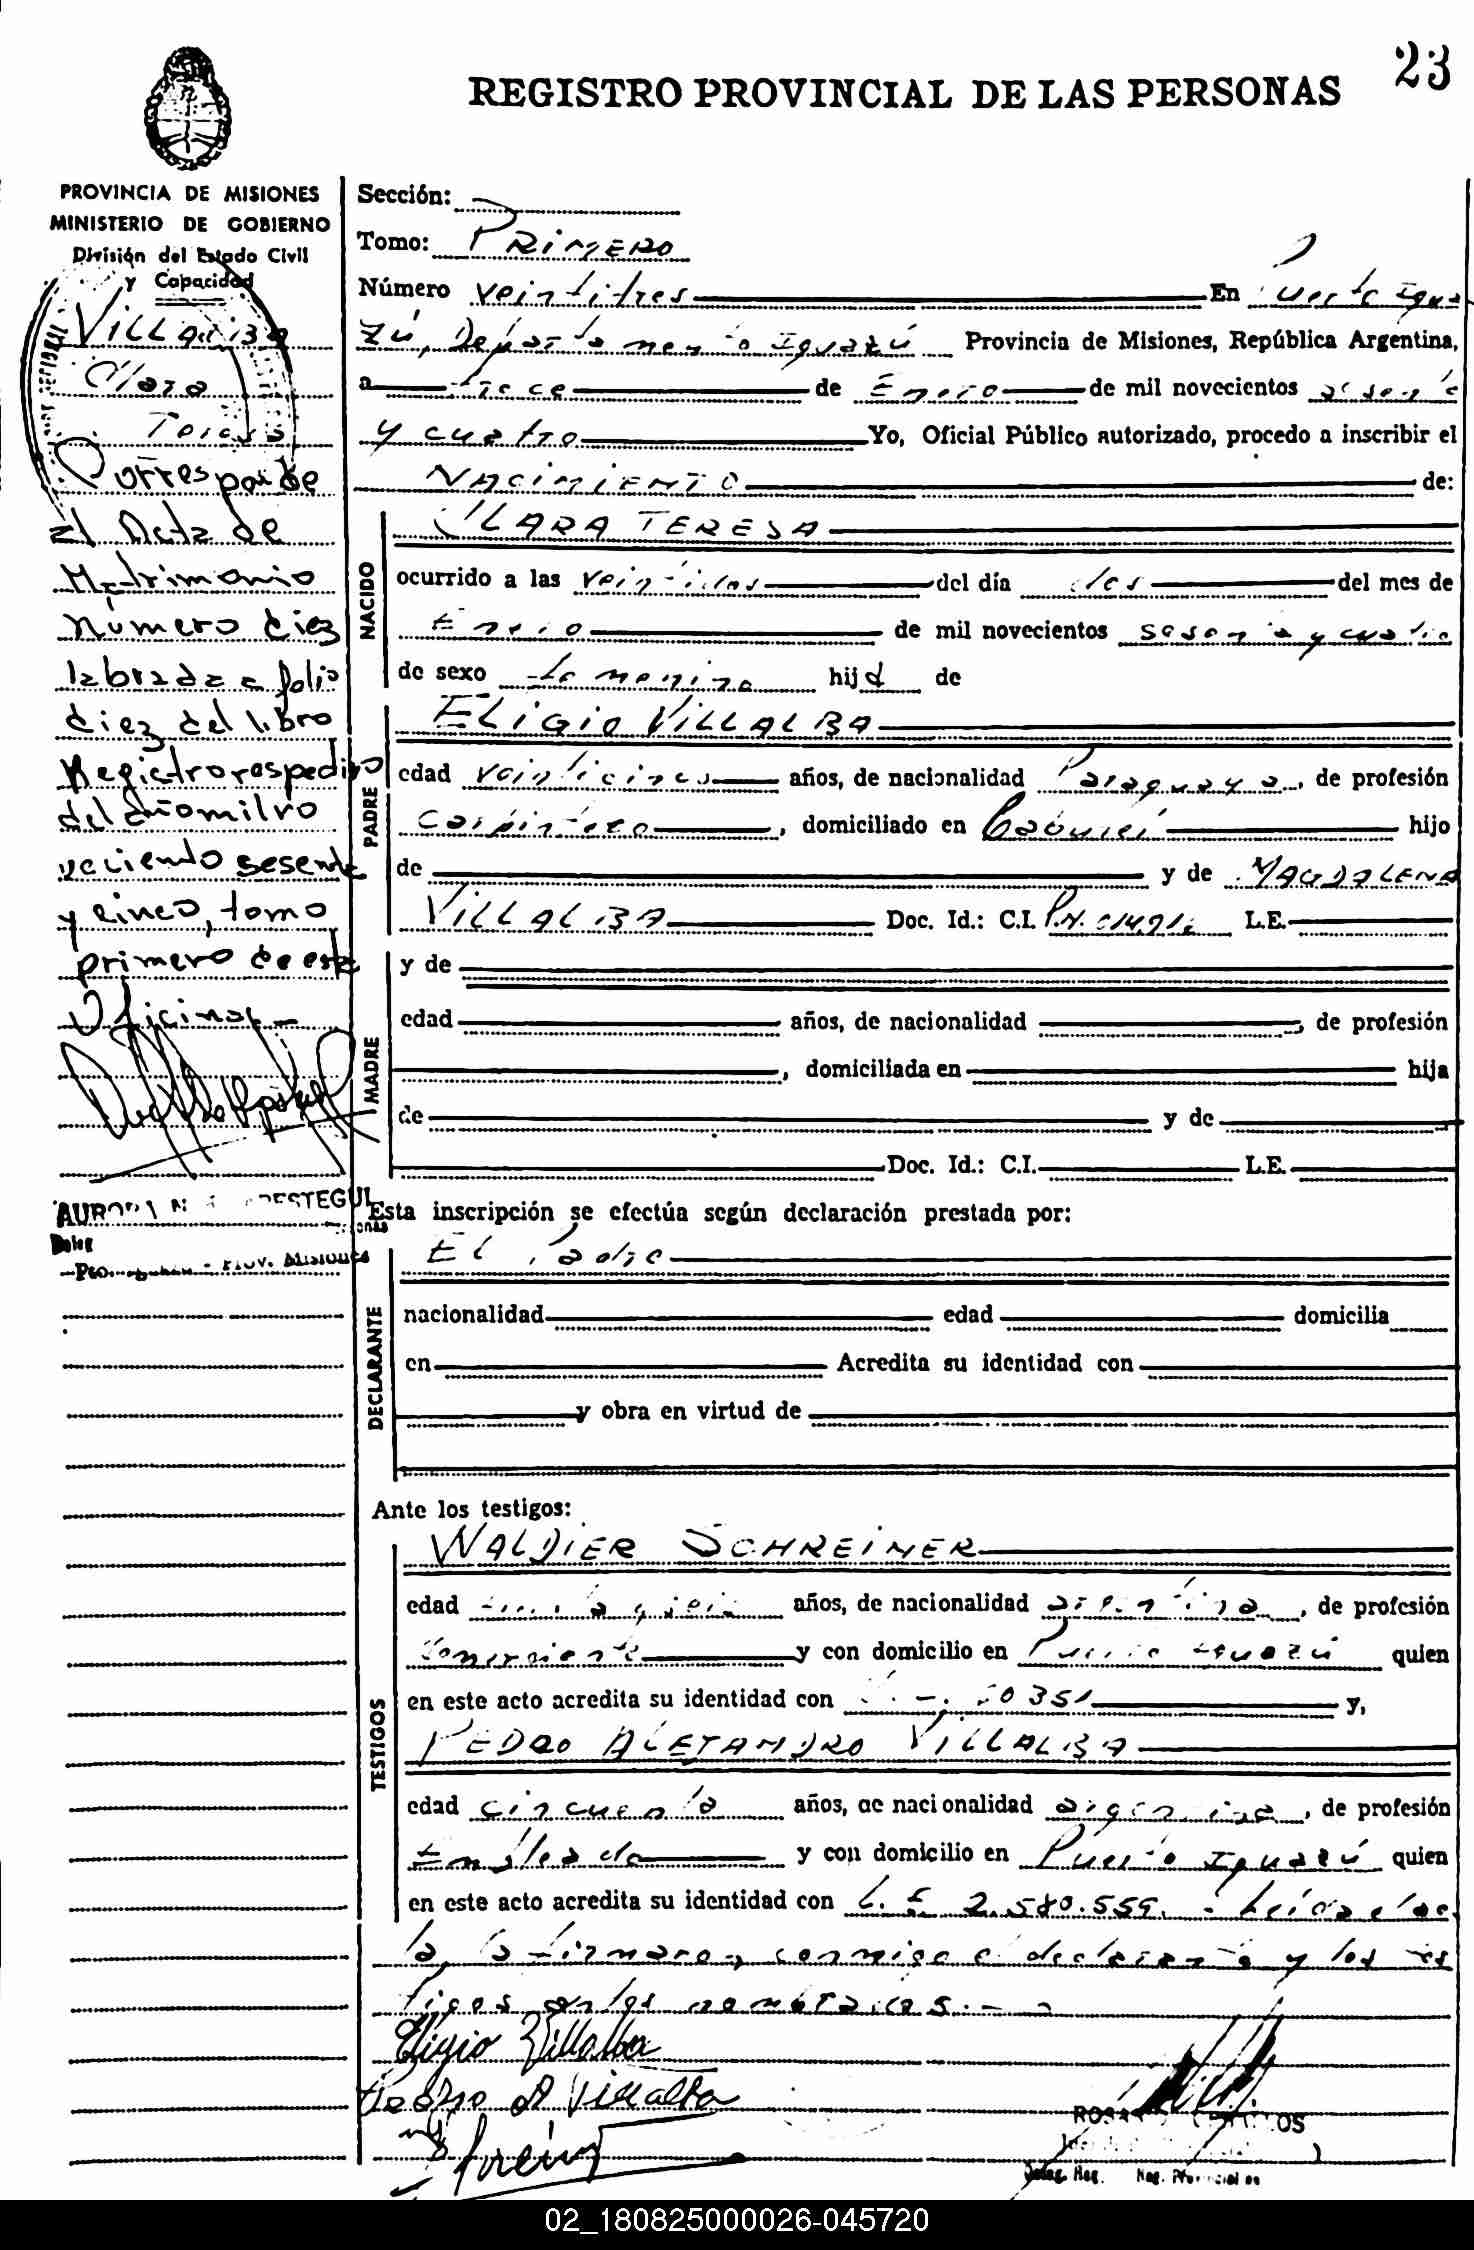 23
REGISTRO PROVINCIAL DE LAS PERSONAS
PROVINCIA DE MISIONES
MINISTERIO DE GOBIERNO
División del Estado Civil
y Capacidad
VILLALBA
Clara
Teresa
Corresponde
al Acta de
Matrimonio
número diez
labrada a folio
diez del libro
Registro respectivo
del año mil no
veciento sesenta
y cinco, tomo
primero de esta
Oficina.-
Sección:
Tomo: PRIMERO
Número veintitres En Puerto Igua
zú, Departamento Iguazú Provincia de Misiones, República Argentina,
a trece de Enero de mil novecientos sesenta
y cuatro Yo, Oficial Público autorizado, procedo a inscribir el
NACIMIENTO de:
NACIDO
CLARA TERESA
ocurrido a las veintidos del día dos del mes de
Enero de mil novecientos sesenta y cuatro
de sexo femenino hija de
PADRE
ELIGIO VILLALBA
edad veinticinco años, de nacionalidad Paraguaya, de profesión
Carpintero, domiciliado en Caburei hijo
de y de MAGDALENA
VILLALBA Doc. Id.: C.I. L.E.
MADRE
y de
edad años, de nacionalidad , de profesión
, domiciliada en hija
de y de
Doc. Id.: C.I. L.E.
Esta inscripción se efectúa según declaración prestada por:
DECLARANTE
El Padre
nacionalidad edad domicilia
en Acredita su identidad con
y obra en virtud de
Ante los testigos:
TESTIGOS
WALDIER SCHREINER
edad años, de nacionalidad argentina, de profesión
Comerciante y con domicilio en Puerto Iguazú quien
en este acto acredita su identidad con y,
PEDRO ALEJANDRO VILLALBA
edad cincuenta años, de nacionalidad argentina, de profesión
Empleado y con domicilio en Puerto Iguazú quien
en este acto acredita su identidad con L.E 2.580.559. - Leída el ac
ta, la firmaron conmigo el declarante y los tes
tigos antes nombrados.-
Eligio Villalba
Pedro A Villalba
02_180825000026-045720